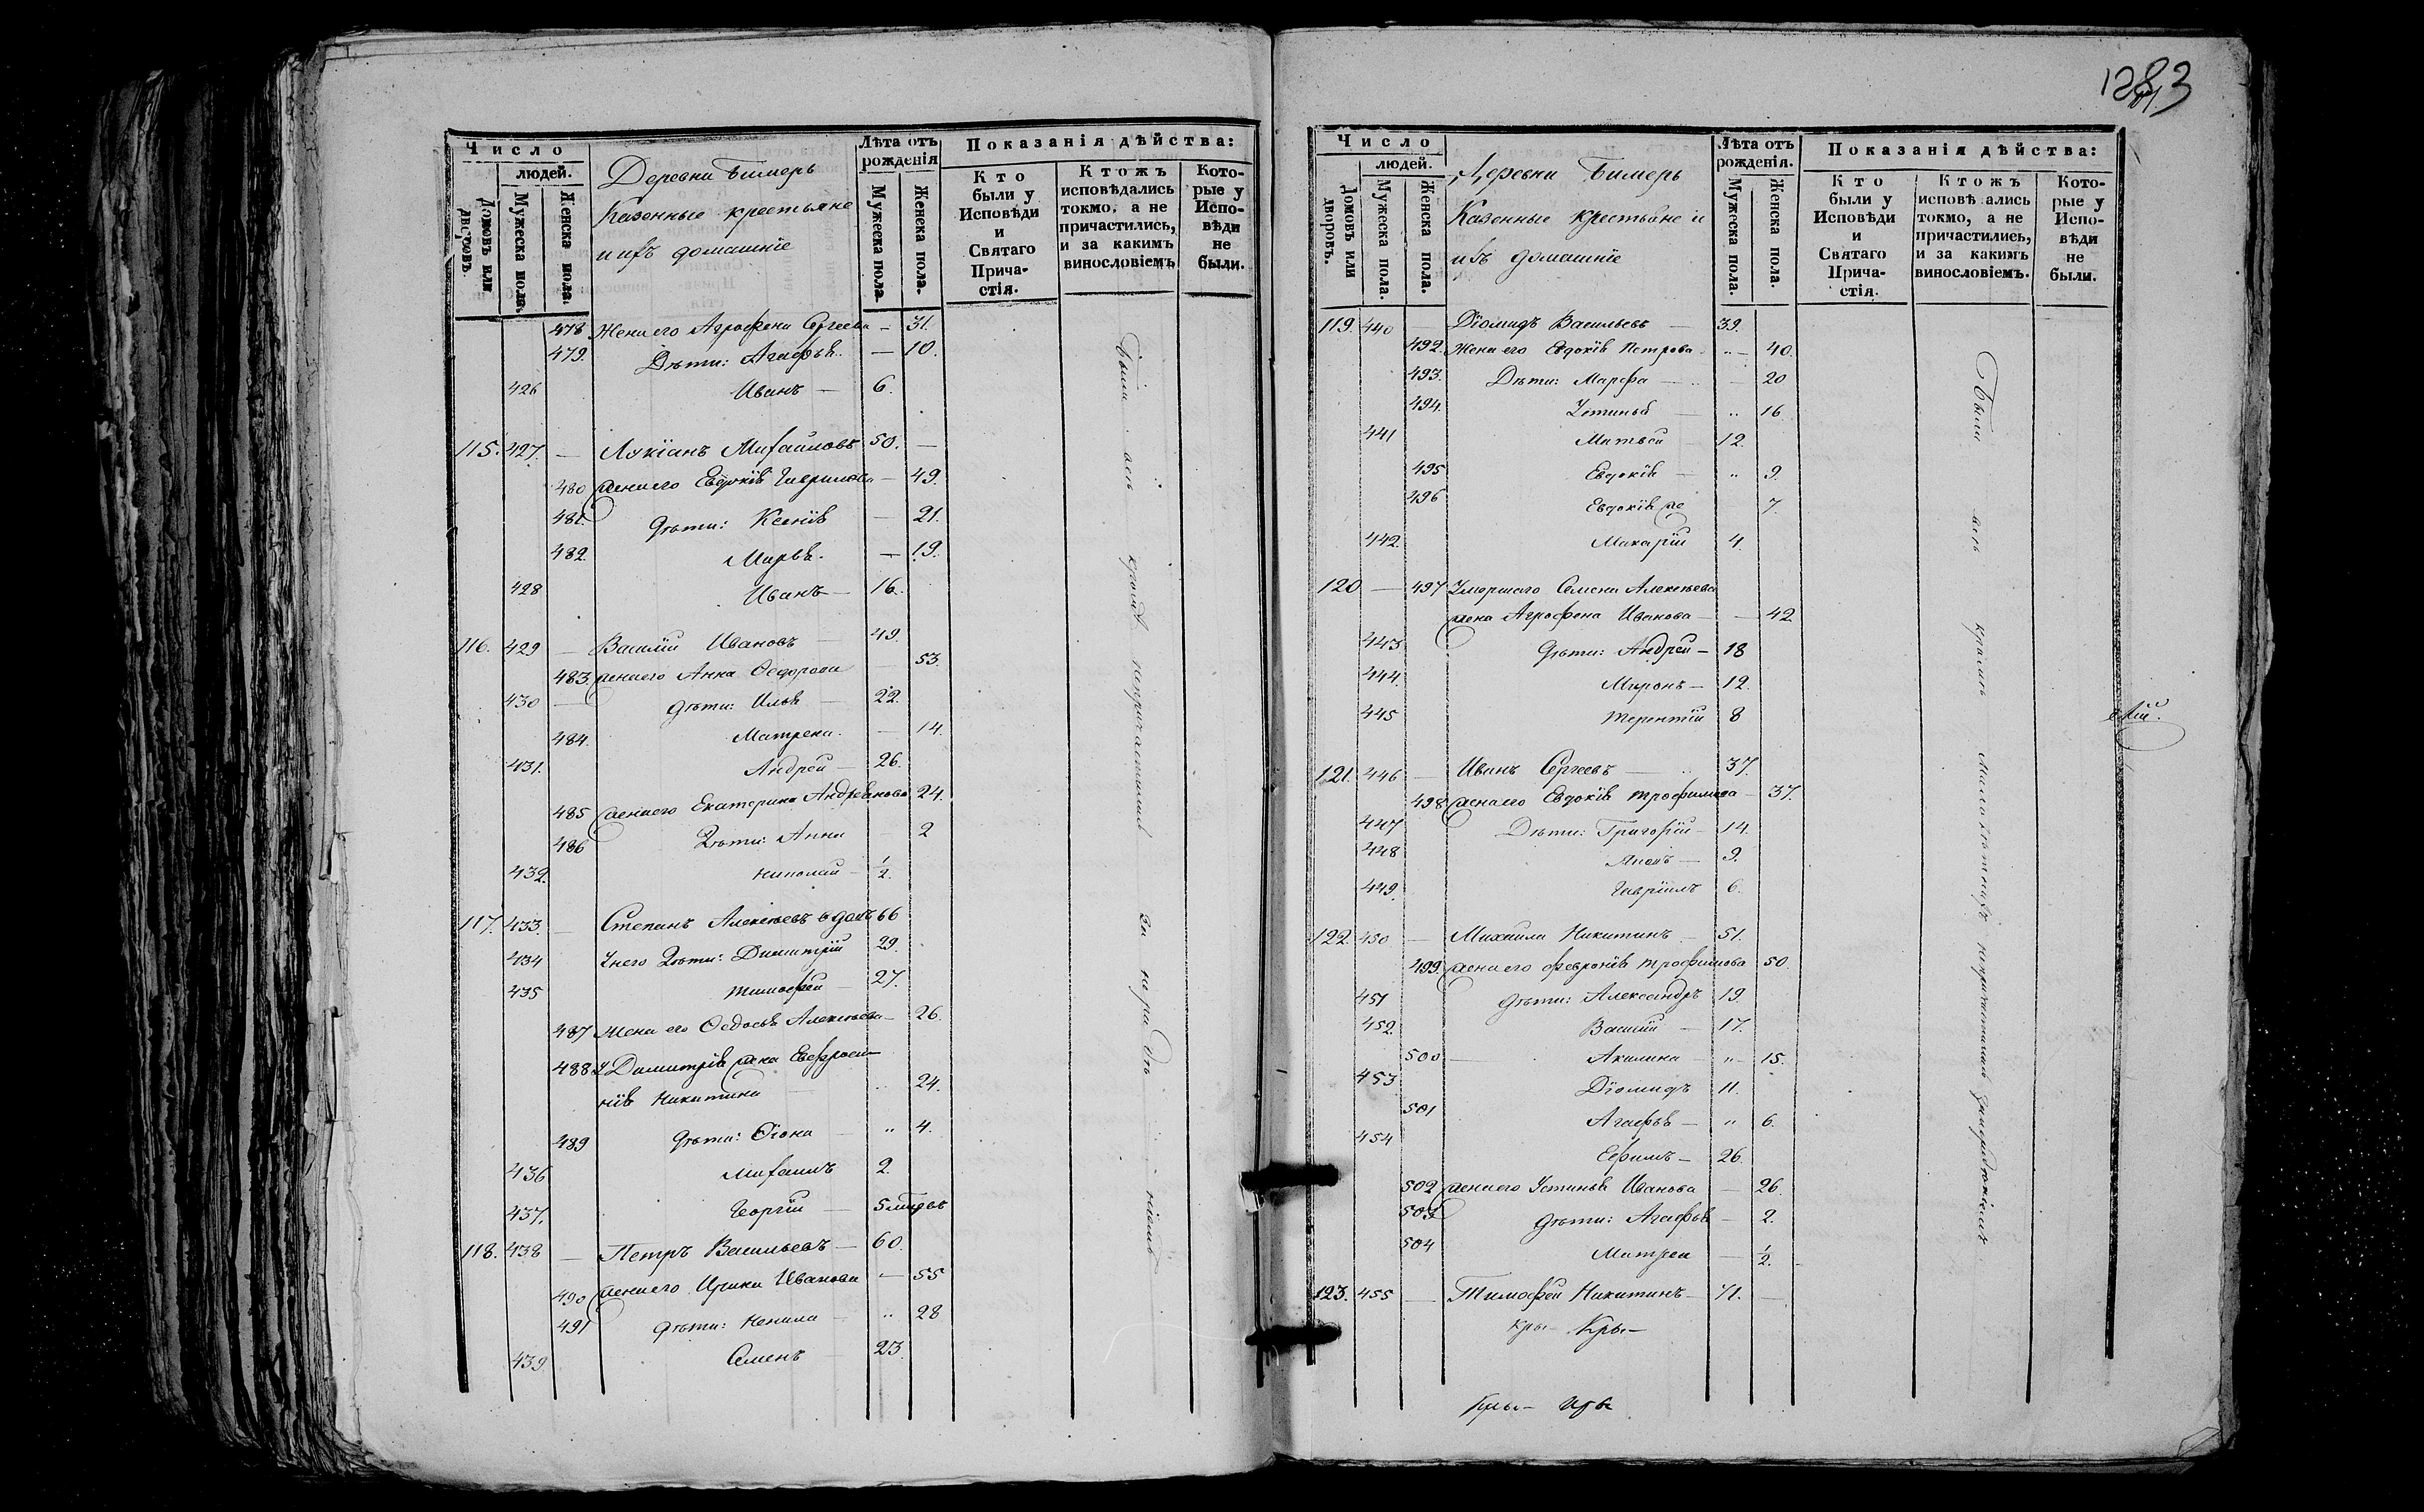 Число
людей.
Домовъ или дворовъ.
Мужеска пола.
Женска пола.
Деревни Бимерь
Казенные крестьяне
и ихъ домашніе
Лѣта отъ рожденія
Мужеска пола.
Женска пола.
Показанія дѣйства:
Кто были у Исповѣди и Святаго Причастія.
Ктожъ исповѣдались токмо, а не причастились, и за какимъ винословіемъ
Которые у Исповѣди не были.
478 Жена его Агрофена Сергеева — 31.
479. Дѣти: Агафья. — 10.
426 Иванъ — 6.
115. 427. — Лукіанъ Михайловъ 50. —
480 жена его Евдокія Гаврилова — 49.
481. дѣти: Ксенія — 21.
482. Марья. — 19.
428 Иванъ — 16.
116. 429 — Василій Ивановъ — 49.
483. жена его Анна Ѳедорова 53.
430 — дѣти: Илья — 22.
484. Матрена. — 14.
431. Андрей — 26.
485 жена его Екатерина Андреянова 24.
486 Дѣти: Анна — 2
432. Николай — 1/2.
117. 433. — Степанъ Алексѣевъ вдовъ 66
434 У него Дѣти: Димитрій 29.
435 Тимофей — 27.
487 Жена его Ѳедосья Алексѣева — 26.
488 У Димитрія жена Евфроси-
нія Никитина — 24.
489 дѣти: Ѳіона — " 4.
436 Михаилъ 2.
437. Георгій — 5 мѣсяцъ
118. 438 — Петръ Васильевъ — 60.
490 жена его Ирина Иванова — 55
491 дѣти: Ненила — " 28
439. Семенъ — 23.
Были всѣ кромѣ
128
Число
людей.
Домовъ или дворовъ.
Мужеска пола.
Женска пола.
Деревни Бимерь
Казенные крестьяне и
ихъ домашніе
Лѣта отъ рожденія.
Мужеска пола.
Женска пола.
Показанія дѣйства:
Кто были у Исповѣди и Святаго Причастія.
Ктожъ исповѣдались токмо, а не причастились, и за какимъ винословіемъ.
Которые у Исповѣди не были.
119. 440 — Діомидъ Васильевъ — 39.
492. Жена его Евдокія Петрова " — 40.
493. Дѣти: Марфа — — 20
494. Устинья — " 16
441 Матвей — 12.
495 Евдокія — " 9.
496 Евдокія же 7.
442. Макарій 4.
120 — 497 Умершаго Семена Алексѣева
жена Агрофена Иванова — — 42
443 дѣти: Андрей — 18
444. Миронъ — 12.
445 Терентій 8
121. 446 — Иванъ Сергеевъ — 37.
498 жена его Евдокія Трофимова — 37.
447 Дѣти: Григорій — 14.
448 — 9.
449. Гавріилъ 6.
122. 450 — Михаила Никитинъ — 51.
499. жена его Февронія Трофимова 50.
451 дѣти: Александръ 19.
452. Василій — 17.
500 — Акилина — " — 15.
453 Діомидъ 11.
501 Агафья — " 6.
454 Ефимъ — 26.
502 жена его Устинья Иванова — 26.
503 дѣти: Агафья — 2.
504 Матрена — 1/2.
123. 455 — Тимофей Никитинъ —
Были всѣ